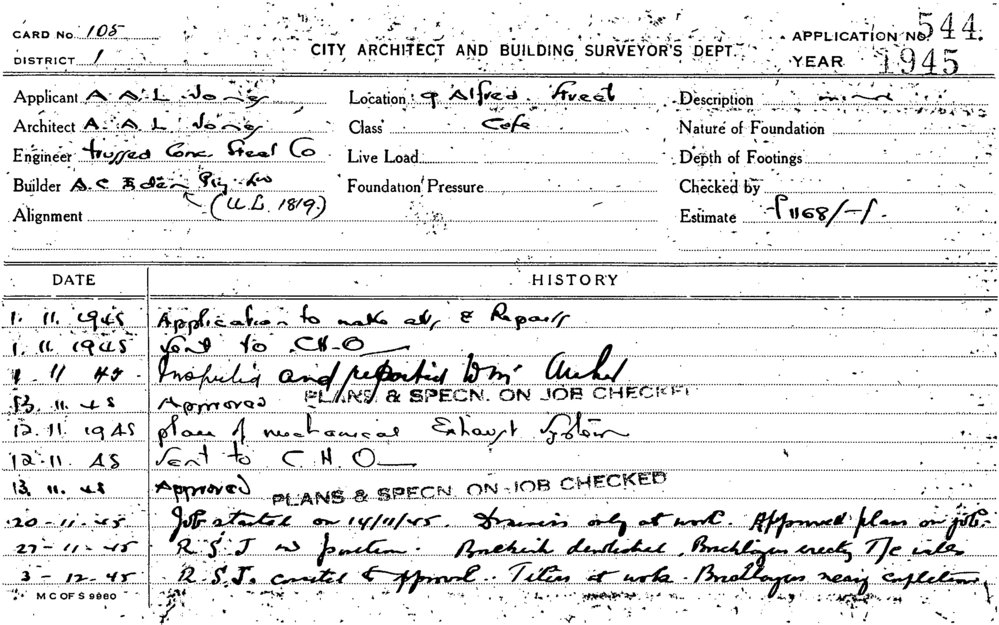 CARD No 105
DISTRICT 1
CITY ARCHITECT AND BUILDING SURVEYOR'S DEPT.
APPLICATION No. 544.
YEAR 1945
Applicant A A L Jones
Location 9 Alfred Street
Description
Architect A. A L Jones
Class Cafe
Nature of Foundation
Engineer Trussed Conc Steel Co
Live Load
Depth of Footings
Builder A. C
Foundation Pressure
Checked by
(U.L. 1819.)
Alignment
Estimate £1168/-/-
DATE
HISTORY
1. 11. 1945 Application to make alts & Repairs
1. 11 1945 Sent to C.H.O
11 45 Inspected and reported
11. 45 Approved PLANS & SPECN. ON JOB CHECKED
12. 11. 1945 plans of mechanical Exhaust System
12-11. 45 Sent to C H O
13. 11. 45 Approved PLANS & SPECN. ON JOB CHECKED
20-11-45 Job started on 14/11/45. only at work. Approved plans on job.
27-11-45 R S J in position. Bricklayers erecting T/c
3-12-45 R. S. J. to approval. Tilers at work. Bricklayers nearing completion
M C OF S 9960